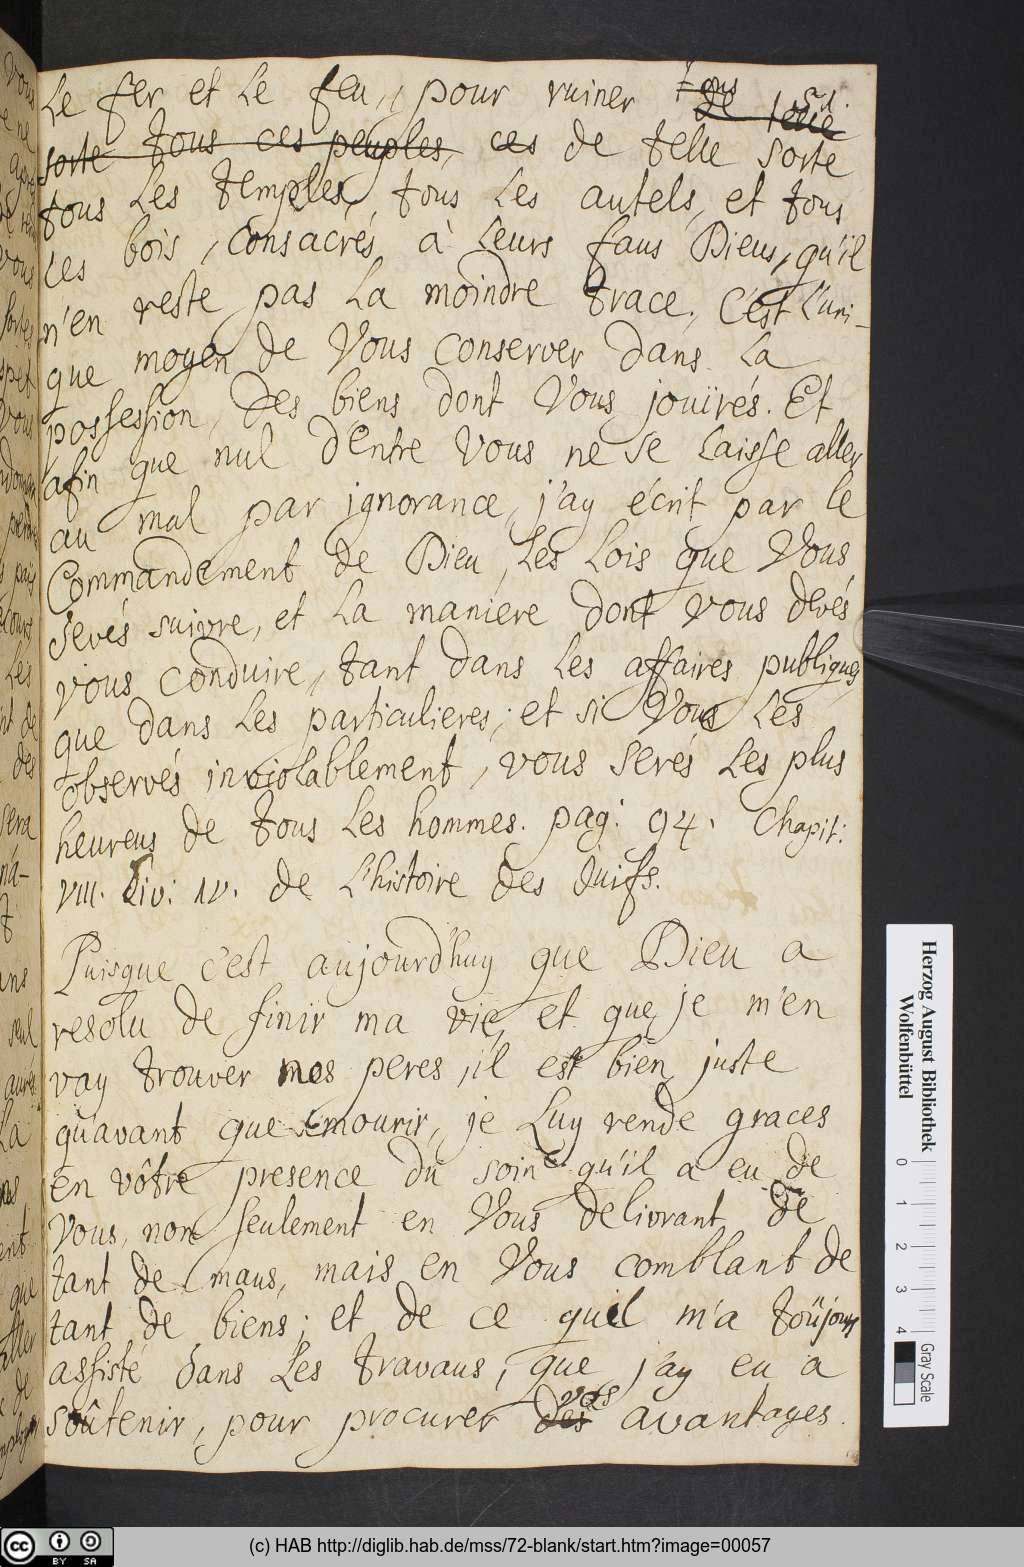 Le fer et Le feu, pour ruiner tous
de telle
sorte tous ces peuples, ces de telle sorte
tous Les temples, tous Les autels, et tous
Les bois, consacrés à Leurs faus Dieus, qu'il
n'en reste pas La moindre trace. C'est L'uni-
que moyen de Vous conserver dans La
possession, Des biens dont Vous jouïrés. Et
afin que nul d'Entre Vous ne se Laisse aller
au mal par ignorance, j'ay écrit par le
Commandement de Dieu, Les Lois que Vous
devés suivre, et La maniere dont vous devés
vous conduire, tant dans Les affaires publiques
que dans Les particulieres; et si Vous Les
observés inviolablement, vous serés Les plus
heureus de tous Les hommes. pag: 94. Chapit:
VIII. Liv: IV. de L'histoire des Juifs.
Puisque c'est aujourd'huy que Dieu a
resolu de finir ma vie, et que je m'en
vay trouver mes peres, il est bien juste
qu'avant que mourir, je Luy rende graces
en vôtre presence du soin qu'il a eu de
Vous, non seulement en Vous delivrant de
tant de maus, mais en Vous comblant de
tant de biens; et de ce quil m'a toûjours
assisté dans Les travaus, que j'ay eu a
soûtenir, pour procurer des vos avantages.
Herzog August Bibliothek
Wolfenbüttel
0 1 2 3 4
Gray Scale
CC BY SA
(c) HAB http://diglib.hab.de/mss/72-blank/start.htm?image=00057